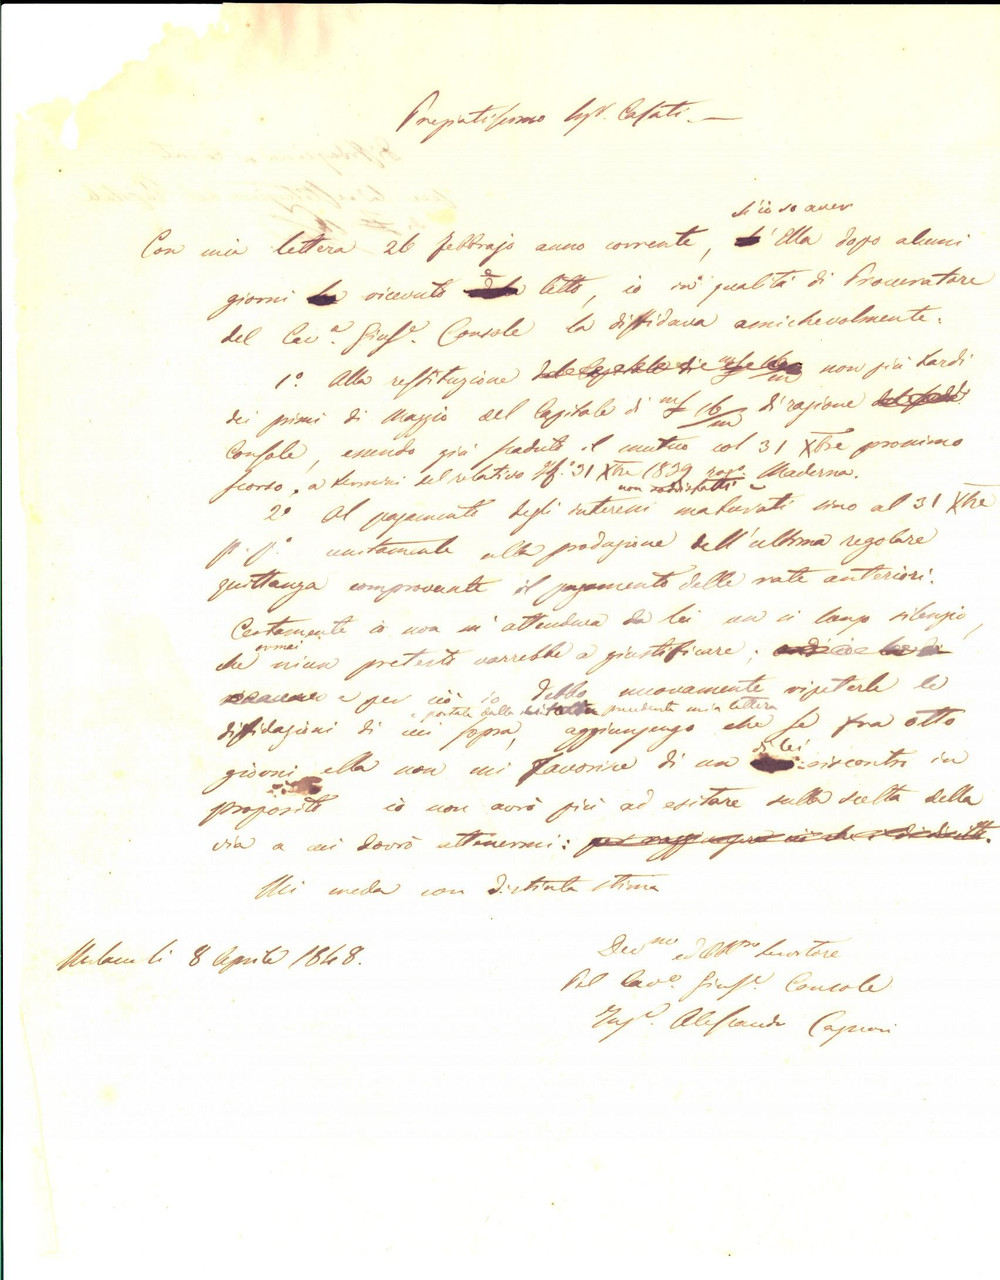 Pregiatissimo Sigr. Casati. —
ch'io so aver
Con mia lettera 26 Febbrajo anno corrente, Ella dopo alcuni
giorni ricevuto e letto, io in qualità di Procuratore
del Cav.e Gius.e Console la diffidava amichevolmente.
1.° Alla restituzione non più tardi
dei primi di Maggio del Capitale di 16/m di ragione
Console, essendo già scaduto il mutuo col 31 Xbre prossimo
scorso, a termini del relativo 31 Xbre 1839 rog.o Maderna.
non soddisfatti
2.° Al pagamento degli interessi maturati sino al 31 Xbre
p.° p.° unitamente alla produzione dell'ultima regolare
quittanza comprovante il pagamento delle rate anteriori.
Certamente io non m'attendeva da lei un sì lungo silenzio,
ormai
che niun pretesto varrebbe a giustificare;
e per ciò io debbo nuovamente ripeterle le
portate dalla precedente mia lettera
diffidazioni di cui sopra, aggiungo che se fra otto
di lei
giorni ella non mi favorisse di un riscontro in
proposito io non avrò più ad esitare sulla scelta della
via a cui dovrò attenermi:
Mi creda con distinta stima
Milano li 8 Aprile 1848.
Dev.mo ed Obb.mo Servitore
Pel Cav.e Gius.e Console
Ing.r Alessandro